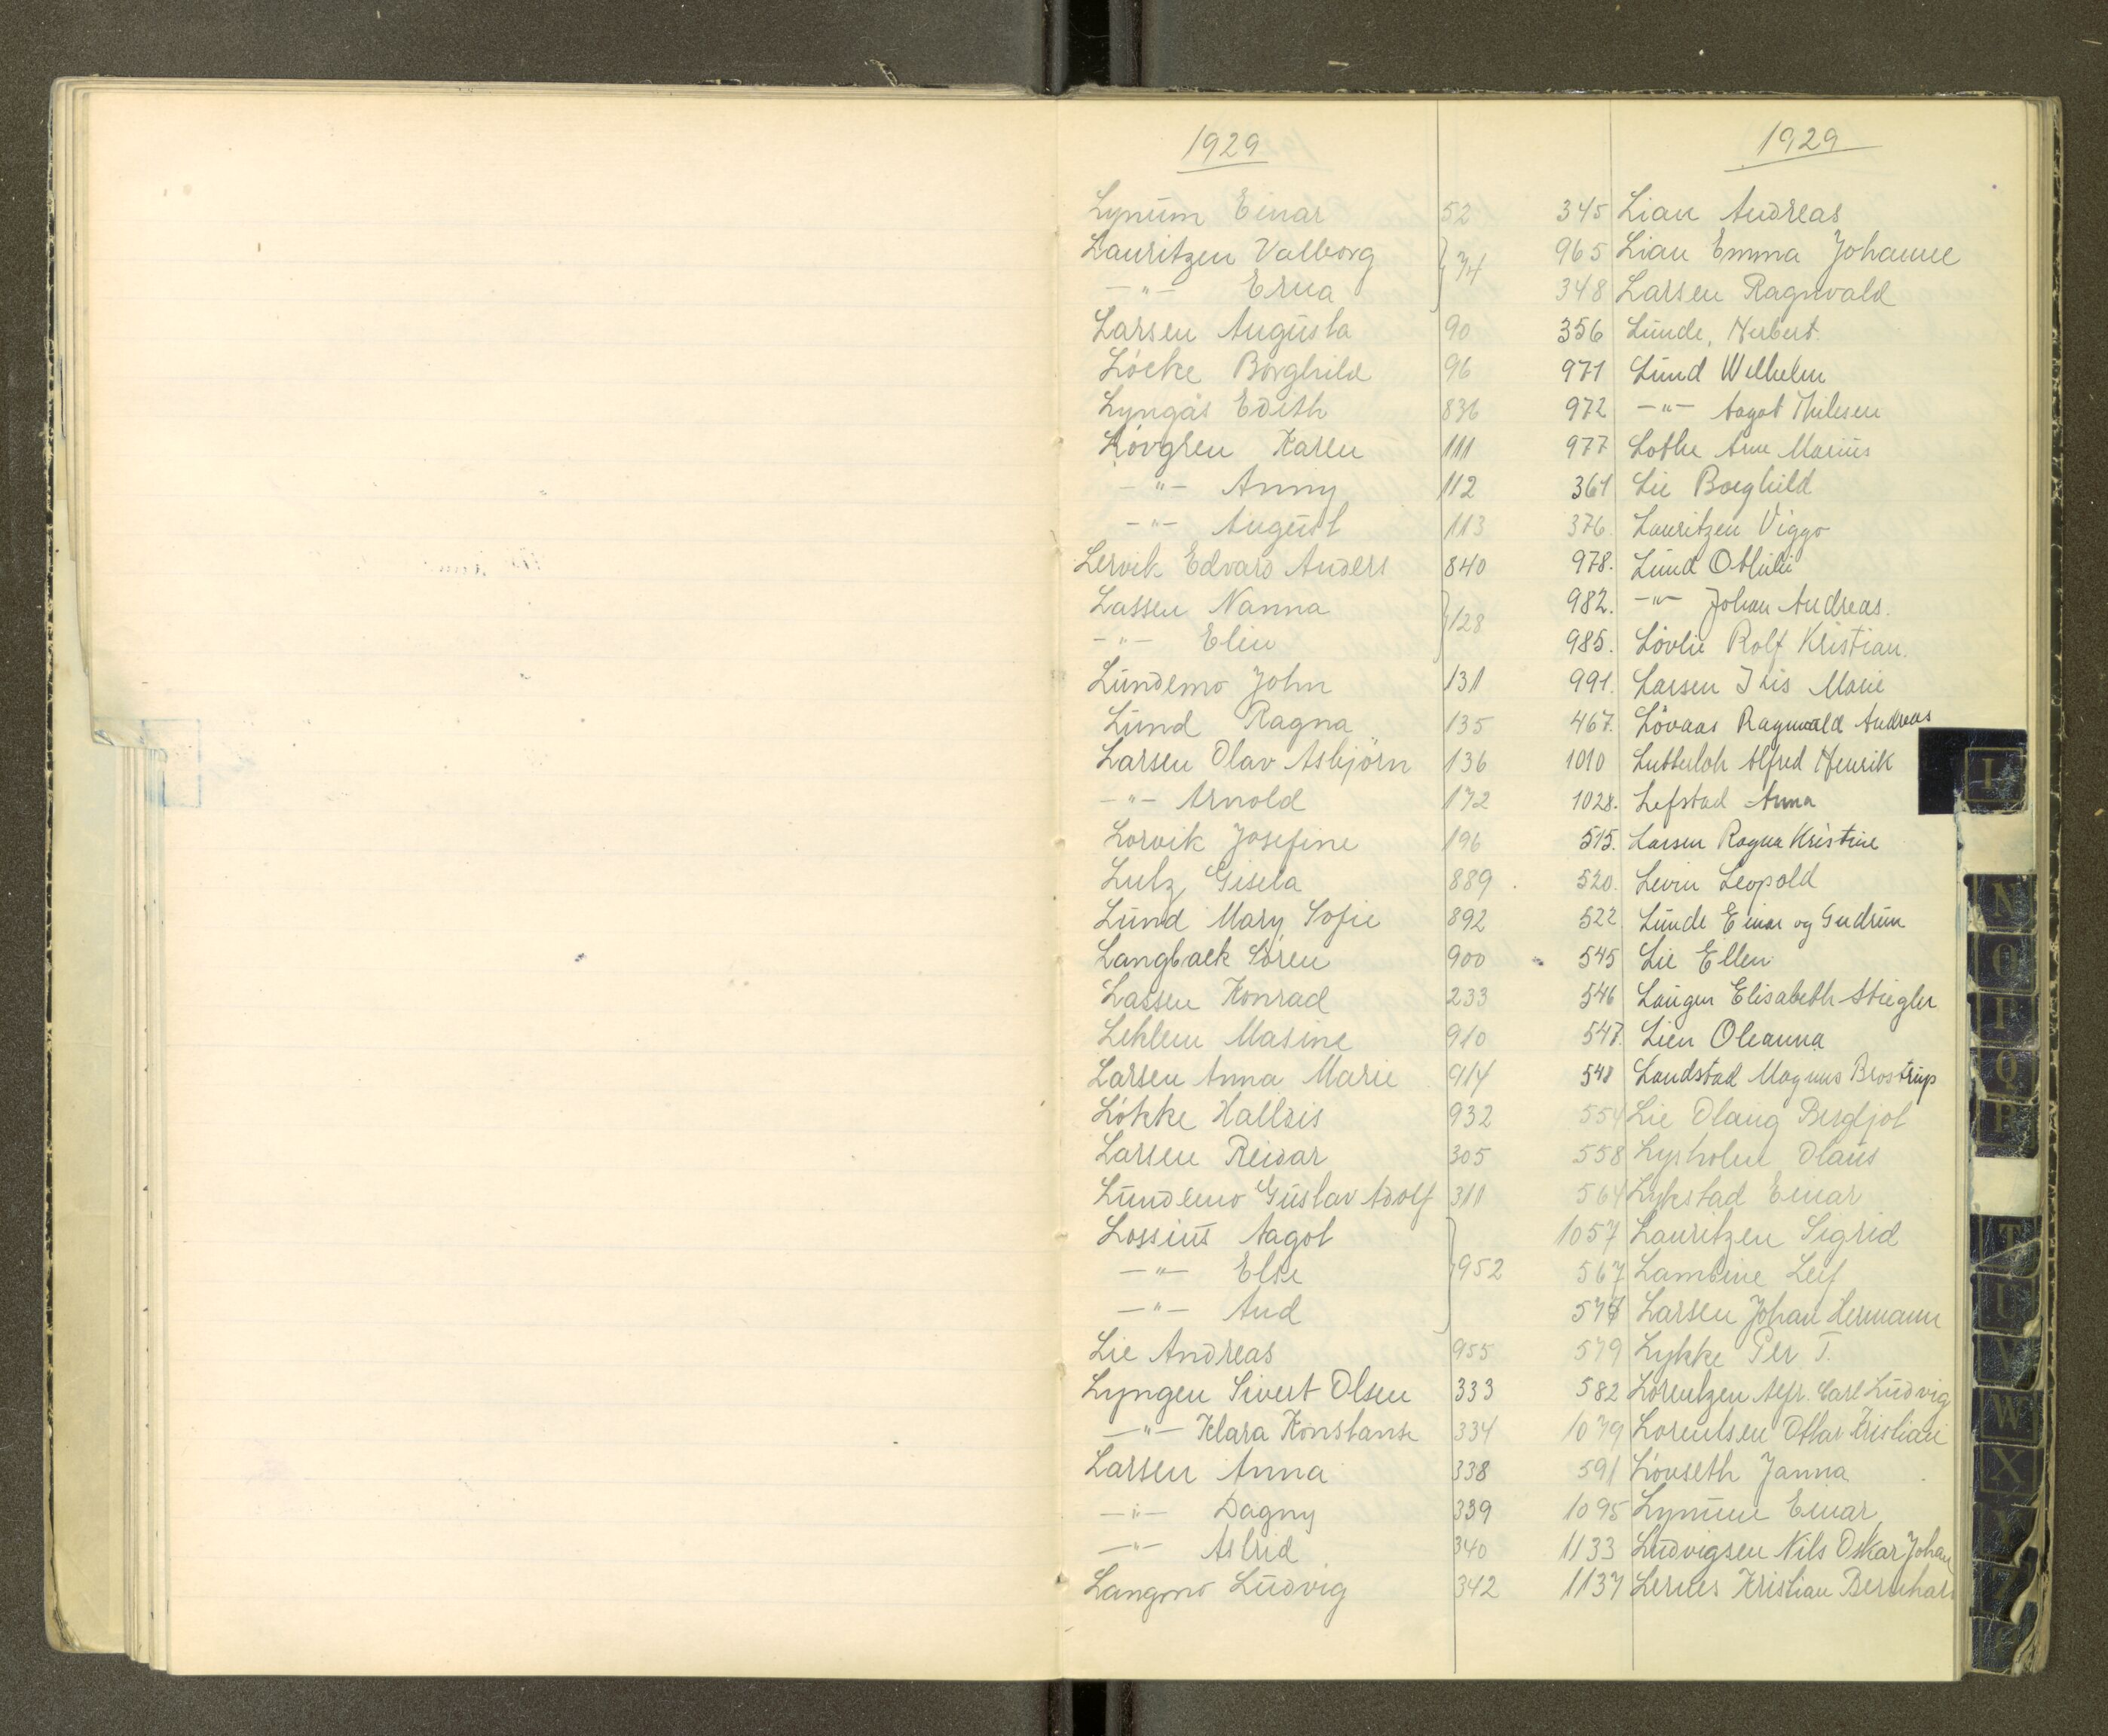 1929
Lynum Einar 52
Lauritzen Valborg 74
-"- Erna
Larsen Augusta 90
Löcke Borghild 96
Lyngås Edith 836
Lövgren Karen 111
-"- Anny 112
-"- August 113
Lervik Edvard Anders 840
Lassen Nanna 128
-"- Elin
Lundemo John 131
Lund Ragna 135
Larsen Olav Asbjörn 136
-"- Arnold 172
Lorvik Josefine 196
Lutz Gisela 889
Lund Mary Sofie 892
Langbaek Sören 900
Lassen Konrad 233
Lehlem Masine 910
Larsen Anna Marie 914
Lökke Halldis 932
Larsen Reidar 305
Lundemo Gustav Adolf 311
Lossius Aagot
-"- Else 952
-"- Aud
Lie Andreas 955
Lyngen Sivert Olsen 333
-"- Klara Konstanse 334
Larsen Anna 338
-"- Dagny 339
-"- Astrid 340
Langmo Ludvig 342
1929
345 Lian Andreas
965 Lian Emma Johanne
348 Larsen Ragnvald
356 Lunde, Herbert
971 Lund Wilhelm
972 -"- Aagot Thilesen
977 Lothe Arne Marius
361 Lie Borghild
376 Lauritzen Viggo
978. Lund Othilie
982. -"- Johan Andreas.
985. Lövlie Rolf Kristian.
991. Larsen Marie
467. Lövaas Ragnvald Andreas
1010 Lutterloh Alfred Henrik
1028. Lefstad Anna
515. Larsen Ragna Kristine
520. Levin Leopold
522 Lunde Einar og Gudrun
545 Lie Ellen
546 Laugen Elisabeth Stiegler
547. Lien Oleanna
548 Landstad Magnus Brostrup
554 Lie Olaug Bergljot
558 Lysholm Olaus
564 Lykstad Einar
1057 Lauritzen Sigrid
567 Lambine Leif
Larsen Johan Hermann
579 Lykke Per T.
582 Lorentzen Alfr. Carl Ludvig
1079 Lorentsen Ottar Kristian
591 Lövseth Janna
1095 Lynum Einar
1133 Ludvigsen Nils Oskar Johan
1137 Lernes Kristian Bernhard
L
N
O
Q
P
T
U
V
W
X
Y
Z